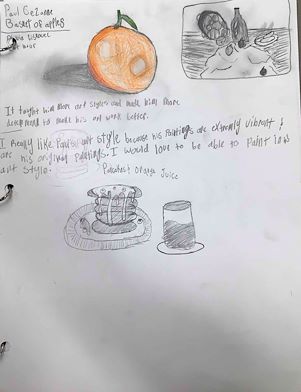 Paul Cezanne
Basket of apples
It taught him more art styles and made him more
determined to make his art work better.
I Really like Paul's art style because his Paintings are extremely vibrant &
are his original Paintings. I would love to be able to Paint
art style.
Pancakes & Orange Juice